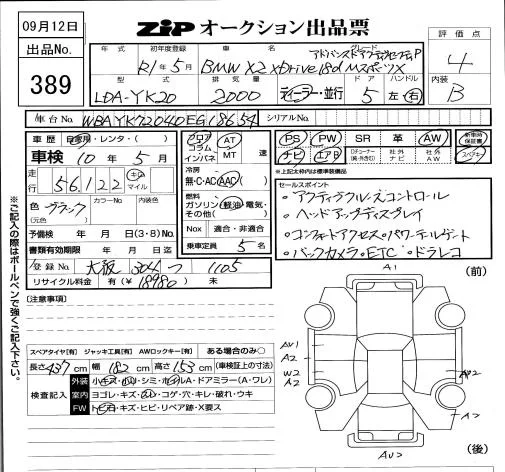 09月12日
ZIP オークション出品票
出品No.
389
年式
初年度登録
車名
グレード
R1年5月
BMW X2 xDrive18d MスポーツX
アドバンスドアクティブセーフティP
評価点
4
型式
排気量
ドア
ハンドル
LDA-YK20
2000
ディーラー・並行
5
左・右
内装
B
車台No.
WBAYK72040EG18654
シリアルNo.
車歴
自家用・レンタ・( )
車検 10年5月
走行
56,122
キロ
マイル
色 ブラック
(元色)
カラーNo.
内装色
予備検 年 月 日(3・8)No.
書類有効期限 年 月 日迄
登録No. 大阪 304 つ 1105
リサイクル料金 有(¥18980) 未
フロア
コラム
インパネ
AT
MT
速
冷房
無・C・AC・AAC
燃料
ガソリン・軽油・電気・
その他( )
Nox 適合・非適合
乗車定員 5名
PS PW SR 革 AW
新車時保証書
ナビ エアB
Dチューナー
(純・外きり)
社外
ナビ
社外
AW
スペアキー
※上記太枠内は標準装備品
セールスポイント
・アクティブクルーズコントロール
・ヘッドアップディスプレイ
・コンフォートアクセス・パワーテールゲート
・バックカメラ・ETC・ドラレコ
※ご記入の際はボールペンで強くご記入下さい。
[注意事項]
スペアタイヤ[有] ジャッキ工具[有] AWロックキー[有] ある場合のみ○
長さ437cm 幅182cm 高さ153cm (車検証上の寸法)
検査記入
外装 小キズ・凹・シミ・ホイルA・ドアミラー(A・ワレ)
室内 ヨゴレ・キズ・スレ・コゲ・穴・キレ・破れ・ウキ
FW トビ石・キズ・ヒビ・リペア跡・X要ス
(前)
A1
AU1
A2
W2
A2
AU
(後)